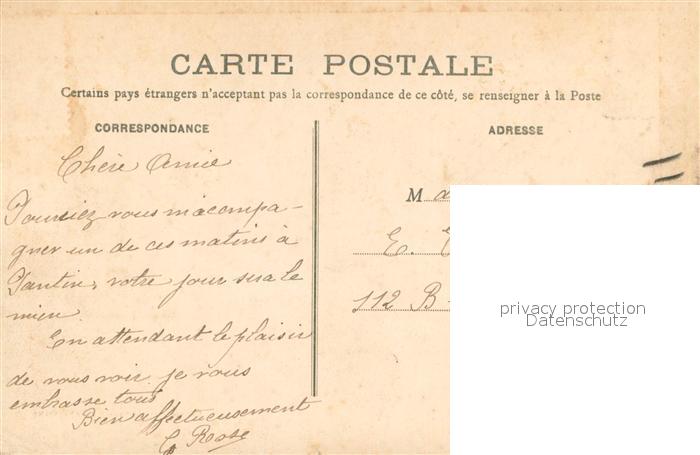 CARTE POSTALE
Certains pays étrangers n'acceptant pas la correspondance de ce côté, se renseigner à la Poste
CORRESPONDANCE
ADRESSE
Chère Amie
Pourriez vous m'acompa-
gner un de ces matins à
Pantin, votre jour sera le
mien.
En attendant le plaisir
de vous voir je vous
embrasse tous
Bien affectueusement
Rose
M
E.
112 B
privacy protection
Datenschutz